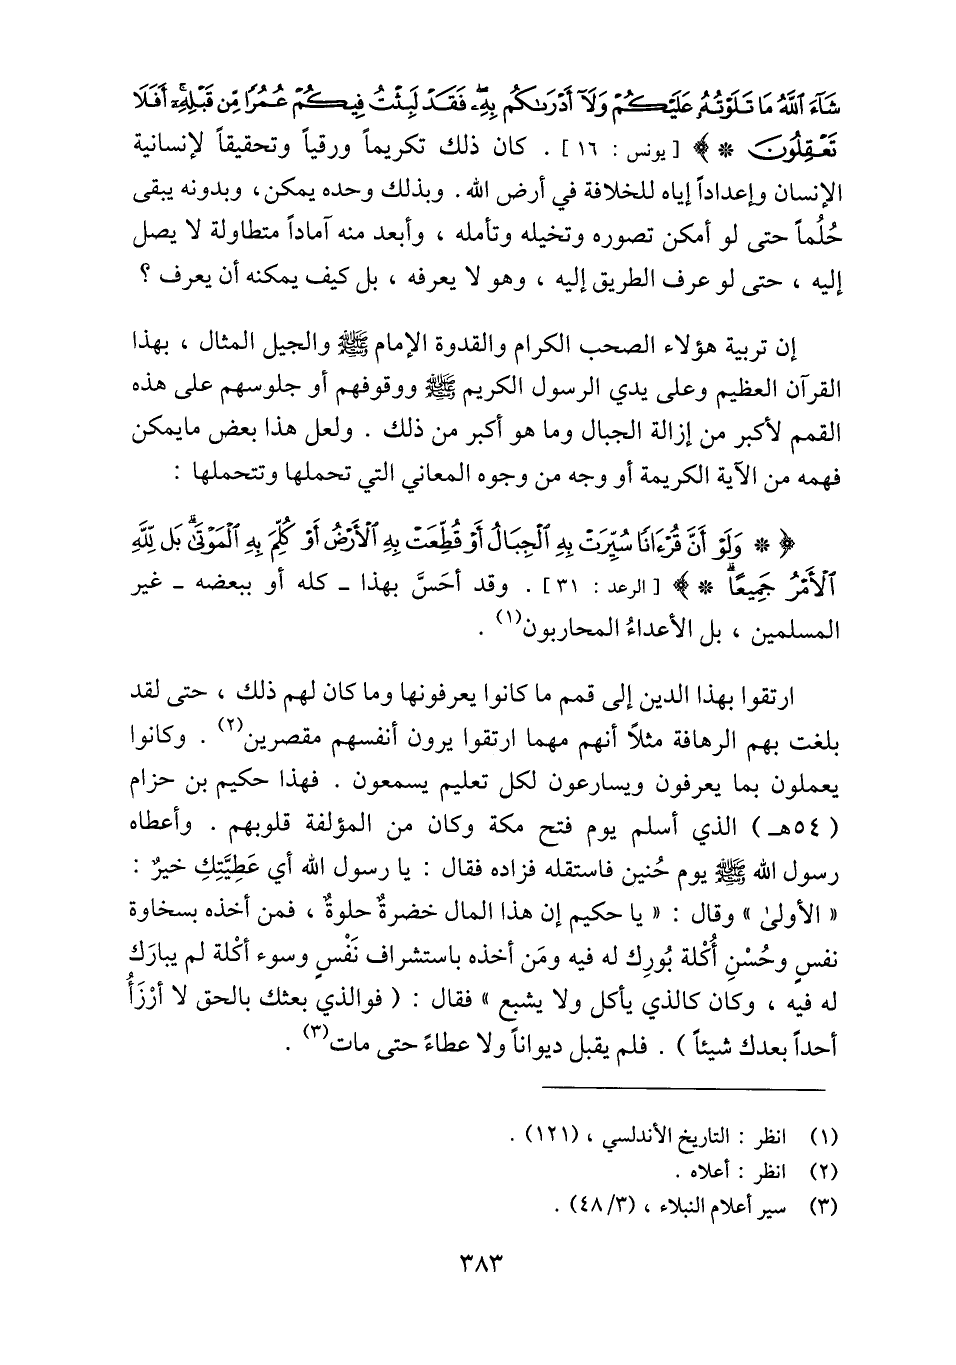 شَآءَ ٱللَّهُ مَا تَلَوۡتُهُۥ عَلَيۡكُمۡ وَلَآ أَدۡرَىٰكُم بِهِۦۖ فَقَدۡ لَبِثۡتُ فِيكُمۡ عُمُرًا مِّن قَبۡلِهِۦٓۚ أَفَلَا
تَعۡقِلُونَ * ﴾ [ يونس : ١٦ ] . كان ذلك تكريماً ورقياً وتحقيقاً لإنسانية
الإنسان وإعداداً إياه للخلافة في أرض الله . وبذلك وحده يمكن، وبدونه يبقى
حُلُماً حتى لو أمكن تصوره وتخيله وتأمله ، وأبعد منه آماداً متطاولة لا يصل
إليه ، حتى لو عرف الطريق إليه ، وهو لا يعرفه ، بل كيف يمكنه أن يعرف ؟
إن تربية هؤلاء الصحب الكرام والقدوة الإمام ﷺ والجيل المثال ، بهذا
القرآن العظيم وعلى يدي الرسول الكريم ﷺ ووقوفهم أو جلوسهم على هذه
القمم لأكبر من إزالة الجبال وما هو أكبر من ذلك . ولعل هذا بعض مايمكن
فهمه من الآية الكريمة أو وجه من وجوه المعاني التي تحملها وتتحملها :
﴿ * وَلَوۡ أَنَّ قُرۡءَانًا سُيِّرَتۡ بِهِ ٱلۡجِبَالُ أَوۡ قُطِّعَتۡ بِهِ ٱلۡأَرۡضُ أَوۡ كُلِّمَ بِهِ ٱلۡمَوۡتَىٰۗ بَل لِّلَّهِ
ٱلۡأَمۡرُ جَمِيعًاۗ * ﴾ [ الرعد : ٣١ ] . وقد أحَسَّ بهذا ـ كله أو ببعضه ـ غير
المسلمين ، بل الأعداءُ المحاربون(١) .
ارتقوا بهذا الدين إلى قمم ما كانوا يعرفونها وما كان لهم ذلك ، حتى لقد
بلغت بهم الرهافة مثلاً أنهم مهما ارتقوا يرون أنفسهم مقصرين(٢) . وكانوا
يعملون بما يعرفون ويسارعون لكل تعليم يسمعون . فهذا حكيم بن حزام
( ٥٤هـ ) الذي أسلم يوم فتح مكة وكان من المؤلفة قلوبهم . وأعطاه
رسول الله ﷺ يوم حُنين فاستقله فزاده فقال : يا رسول الله أي عَطِيَّتِكِ خيرٌ :
« الأولىٰ » وقال : « يا حكيم إن هذا المال خضرةٌ حلوةٌ ، فمن أخذه بسخاوة
نفسٍ وحُسْنِ أُكْلة بُورِك له فيه ومَن أخذه باستشراف نَفْسٍ وسوء أكْلة لم يبارَك
له فيه ، وكان كالذي يأكل ولا يشبع » فقال : ( فوالذي بعثك بالحق لا أرْزَأُ
أحداً بعدك شيئاً ) . فلم يقبل ديواناً ولا عطاءً حتى مات(٣) .
(١) انظر : التاريخ الأندلسي ، (١٢١) .
(٢) انظر : أعلاه .
(٣) سير أعلام النبلاء ، (٤٨/٣) .
٣٨٣